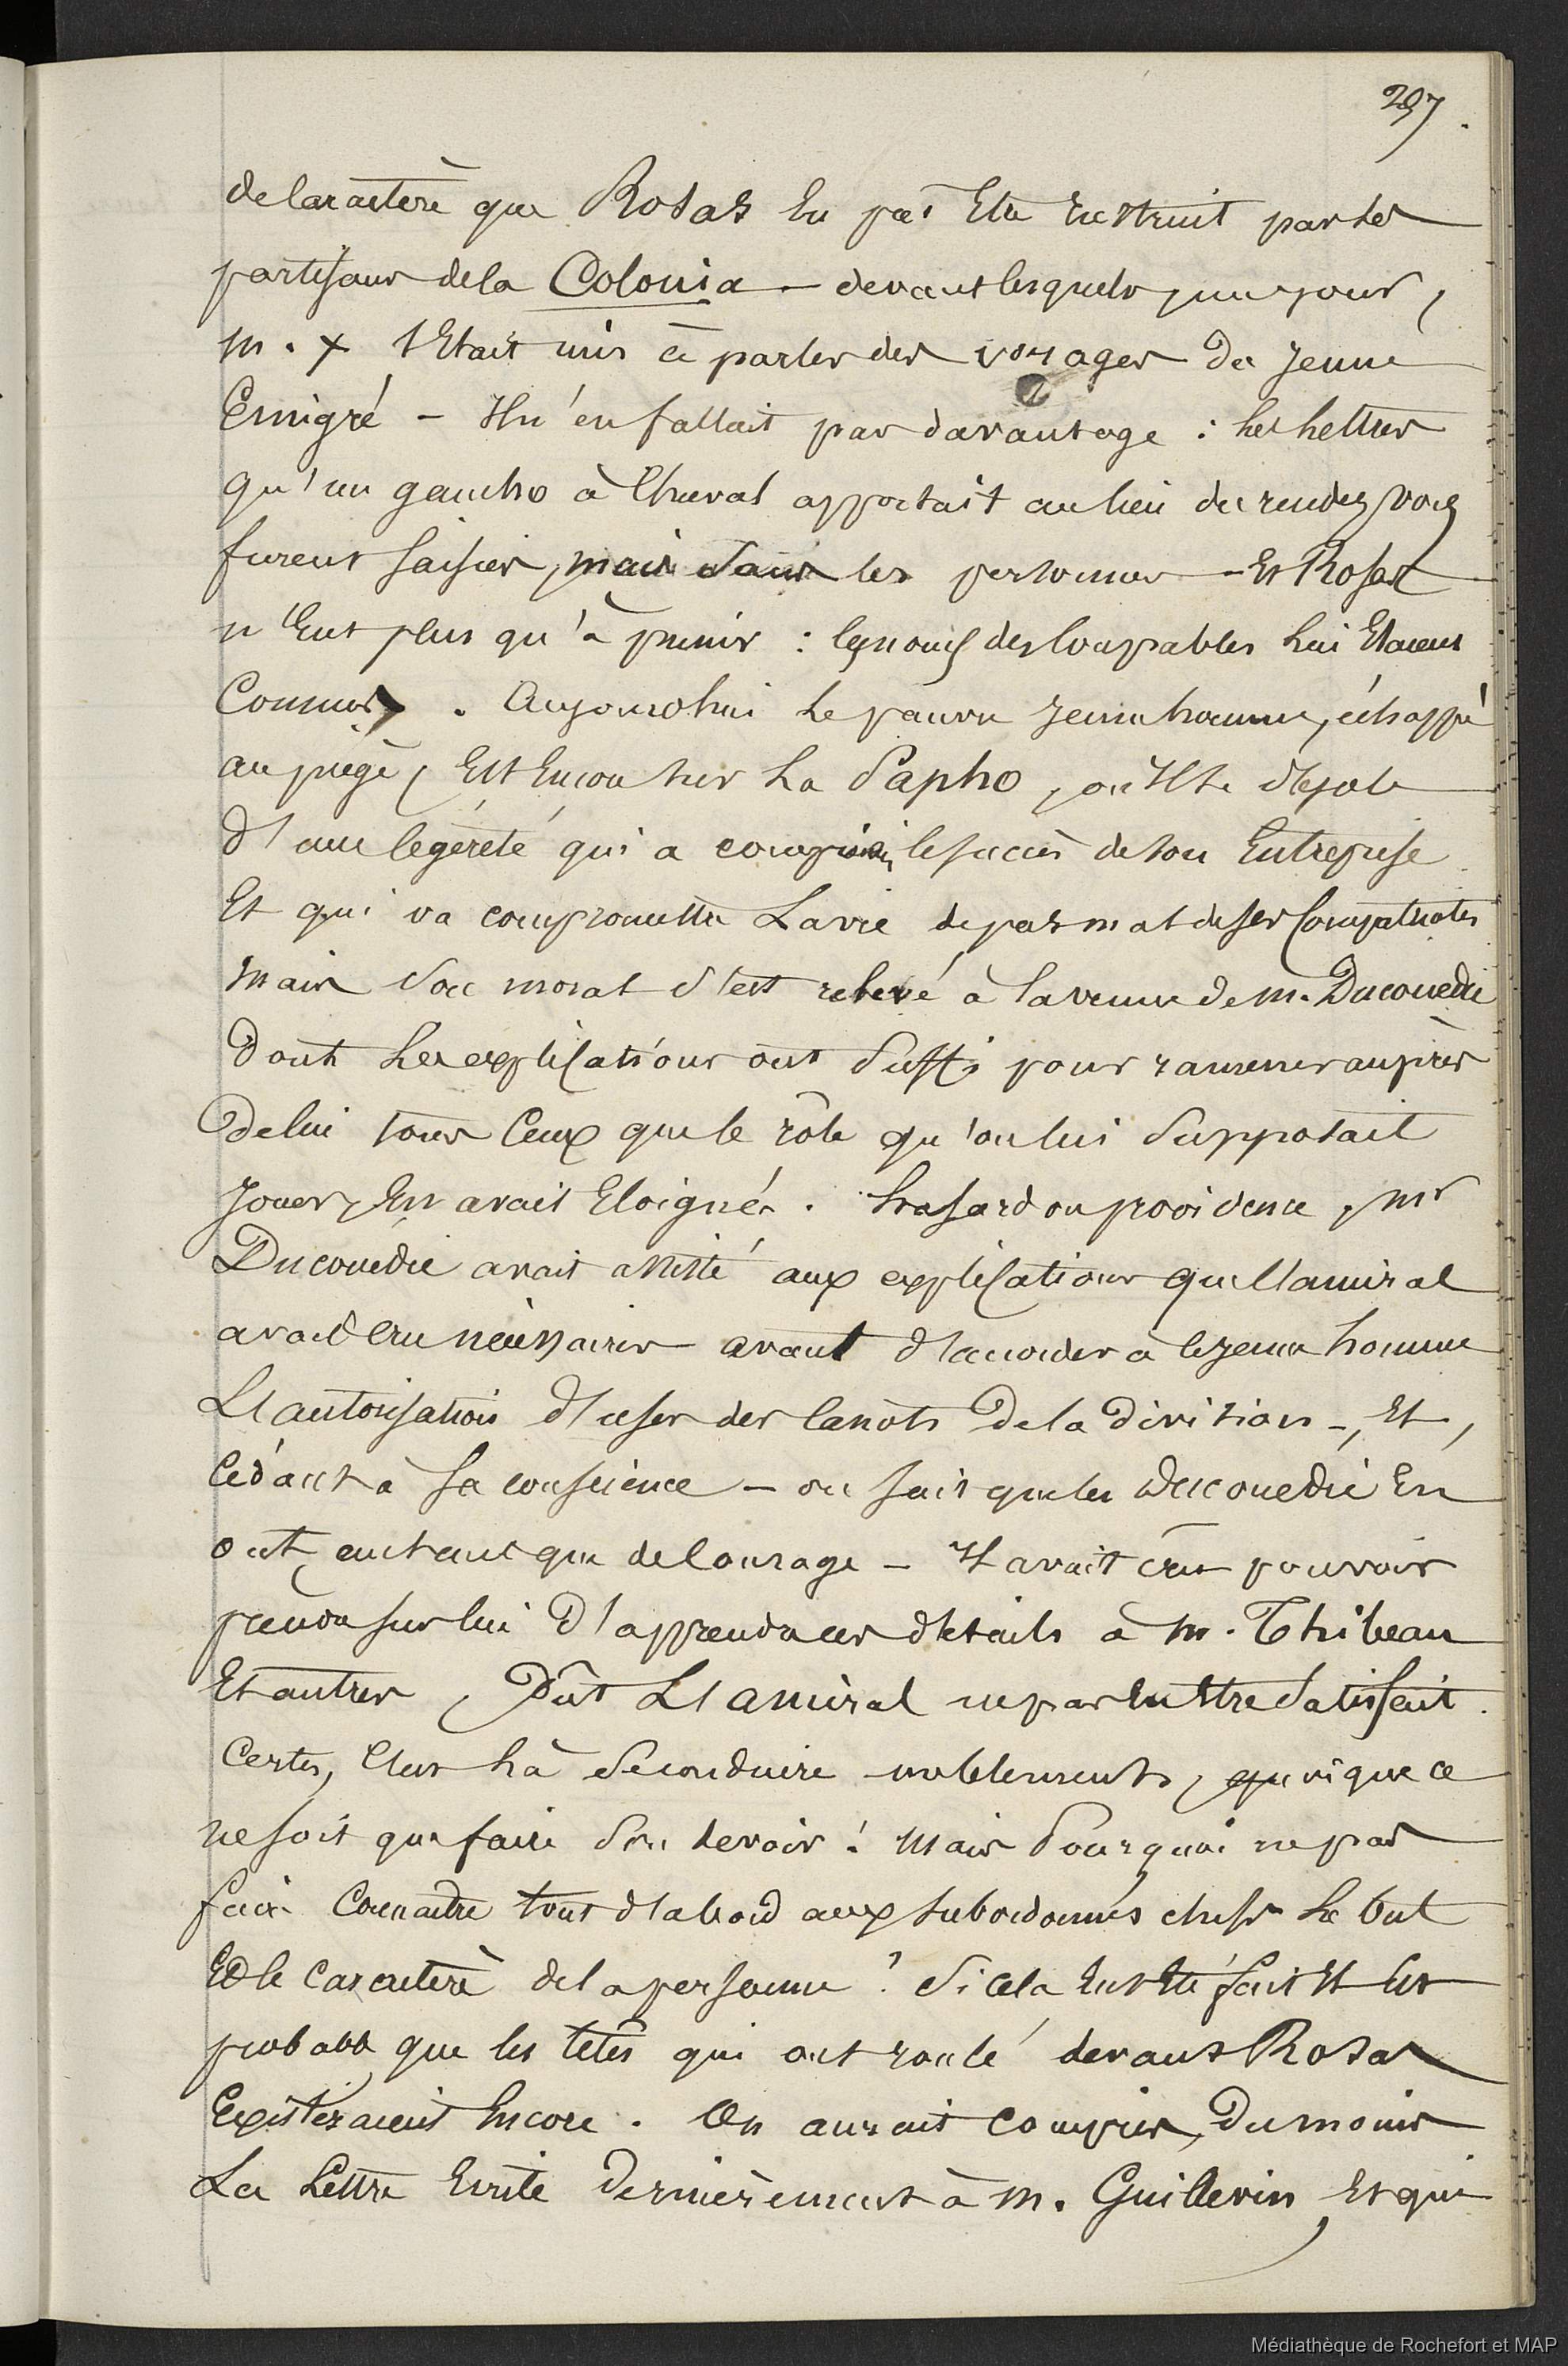 297.
de caractère que Rosas en pût être instruit par les
partisans de la Colonia – devant lesquels, un jour,
m. X s'était mis à parler des voyages du jeune
Emigré – Il n'en fallait pas davantage : les lettres
qu'un gaucho à cheval apportait au lieu du rendez vous
furent saisies, mais sans les personnes – Et Rosas
n'eut plus qu'à punir : les noms des coupables lui étaient
connus. Aujourdhui le pauvre jeune homme, échappé
au piège, Est Encore sur la Sapho, où Il se désole
d'une légèreté qui a compromis le succès de son Entreprise
Et qui va compromettre la vie de pas mal de ses compatriotes
mais son moral s'est relevé à la venue de m. Ducouedic
dont les explications ont suffi pour ramener auprès
de lui tous ceux que le rôle qu'on lui supposait
jouer, En avait Eloignés. hasard ou providence, mr
Ducouédic avait assisté aux explications que l'amiral
avait cru nécessaires avant d'accorder à le jeune homme
L'autorisation d'user des canots de la division –, Et,
cédant à sa conscience – on sait que les Ducouedic En
ont autant que de courage – Il avait cru pouvoir
prendre sur lui d'apprendre ces détails à m. Thibeau
Et autres, Dût L'amiral ne pas En Etre satisfait.
Certes, c'est là se conduire noblement, quoique ce
ne soit que faire son devoir ! mais pourquoi ne pas
faire connaître tout d'abord aux subordonnés chefs le but
Et le caractère de la personne ? Si cela Eut Eté fait Il Est
probable que les têtes qui ont roulé devant Rosas
Existeraient Encore. On aurait compris, du moins
La Lettre Ecrite dernièrement à m. Guillevin Et qui
Médiathèque de Rochefort et MAP